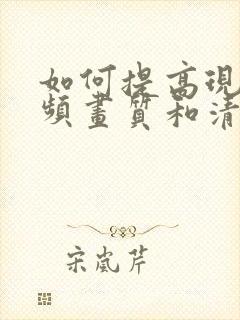 如何提高現
頻畫質和清
宋嵐芹